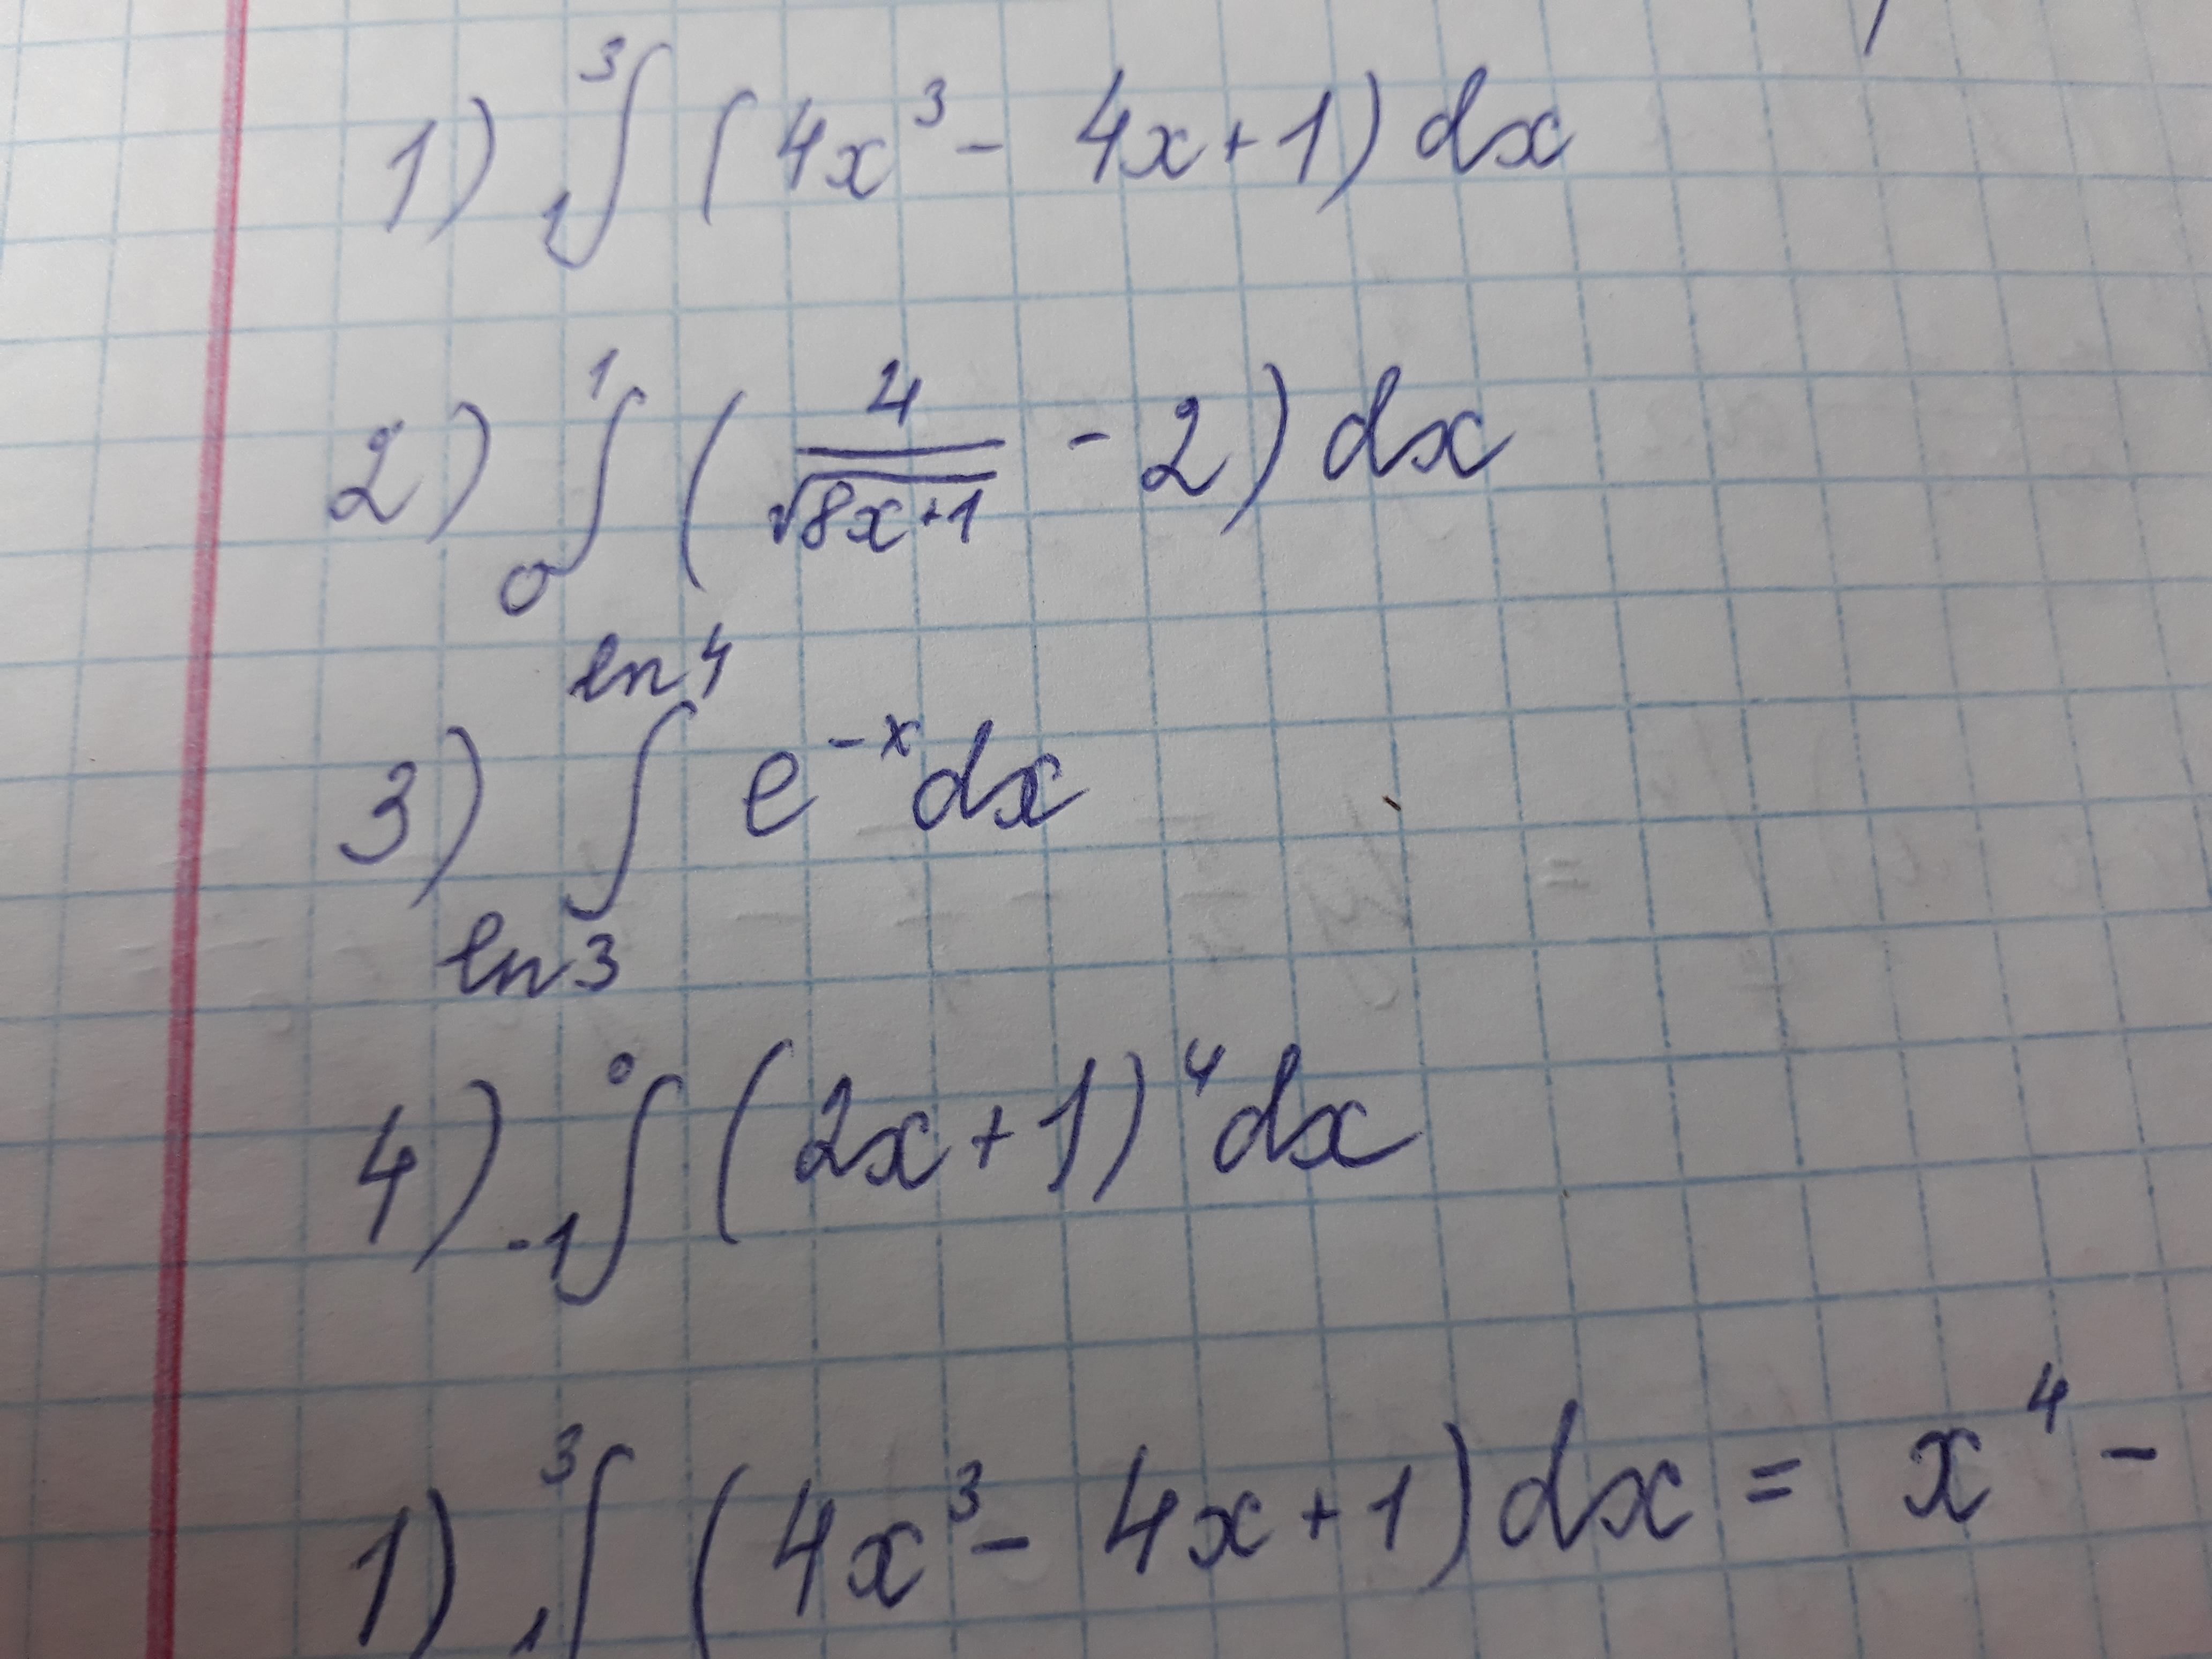 1) ₁∫³ (4x³ - 4x + 1) dx
2) ₀∫¹ (4/√(8x+1) - 2) dx
ln 4
3) ∫ e⁻ˣ dx
ln 3
4) ₋₁∫⁰ (2x + 1)⁴ dx
1) ₁∫³ (4x³ - 4x + 1) dx = x⁴ -